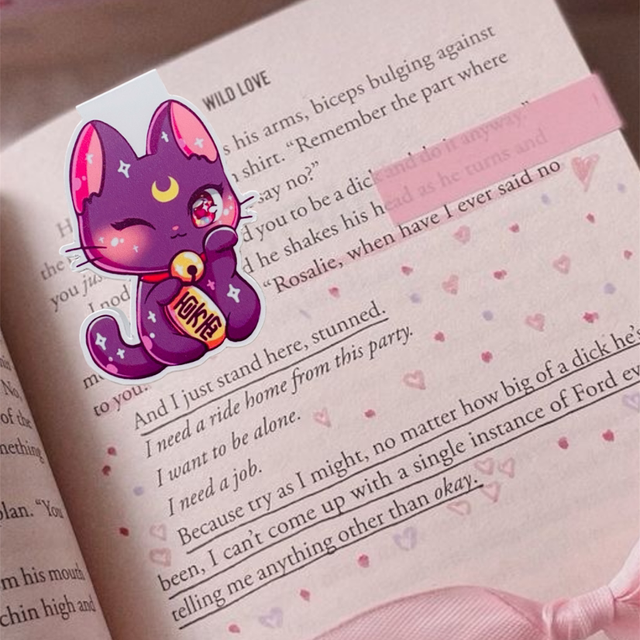 WILD LOVE
s his arms, biceps bulging against
shirt. “Remember the part where
ay no?”
d you to be a dick and do it anyway.”
d he shakes his head as he turns and
“Rosalie, when have I ever said no
to you.
And I just stand here, stunned.
I need a ride home from this party.
I want to be alone.
I need a job.
Because try as I might, no matter how big of a dick he's
been, I can't come up with a single instance of Ford ev
telling me anything other than okay.
the
you jus
I nod
of the
mething
plan. “You
m his mouth
chin high and